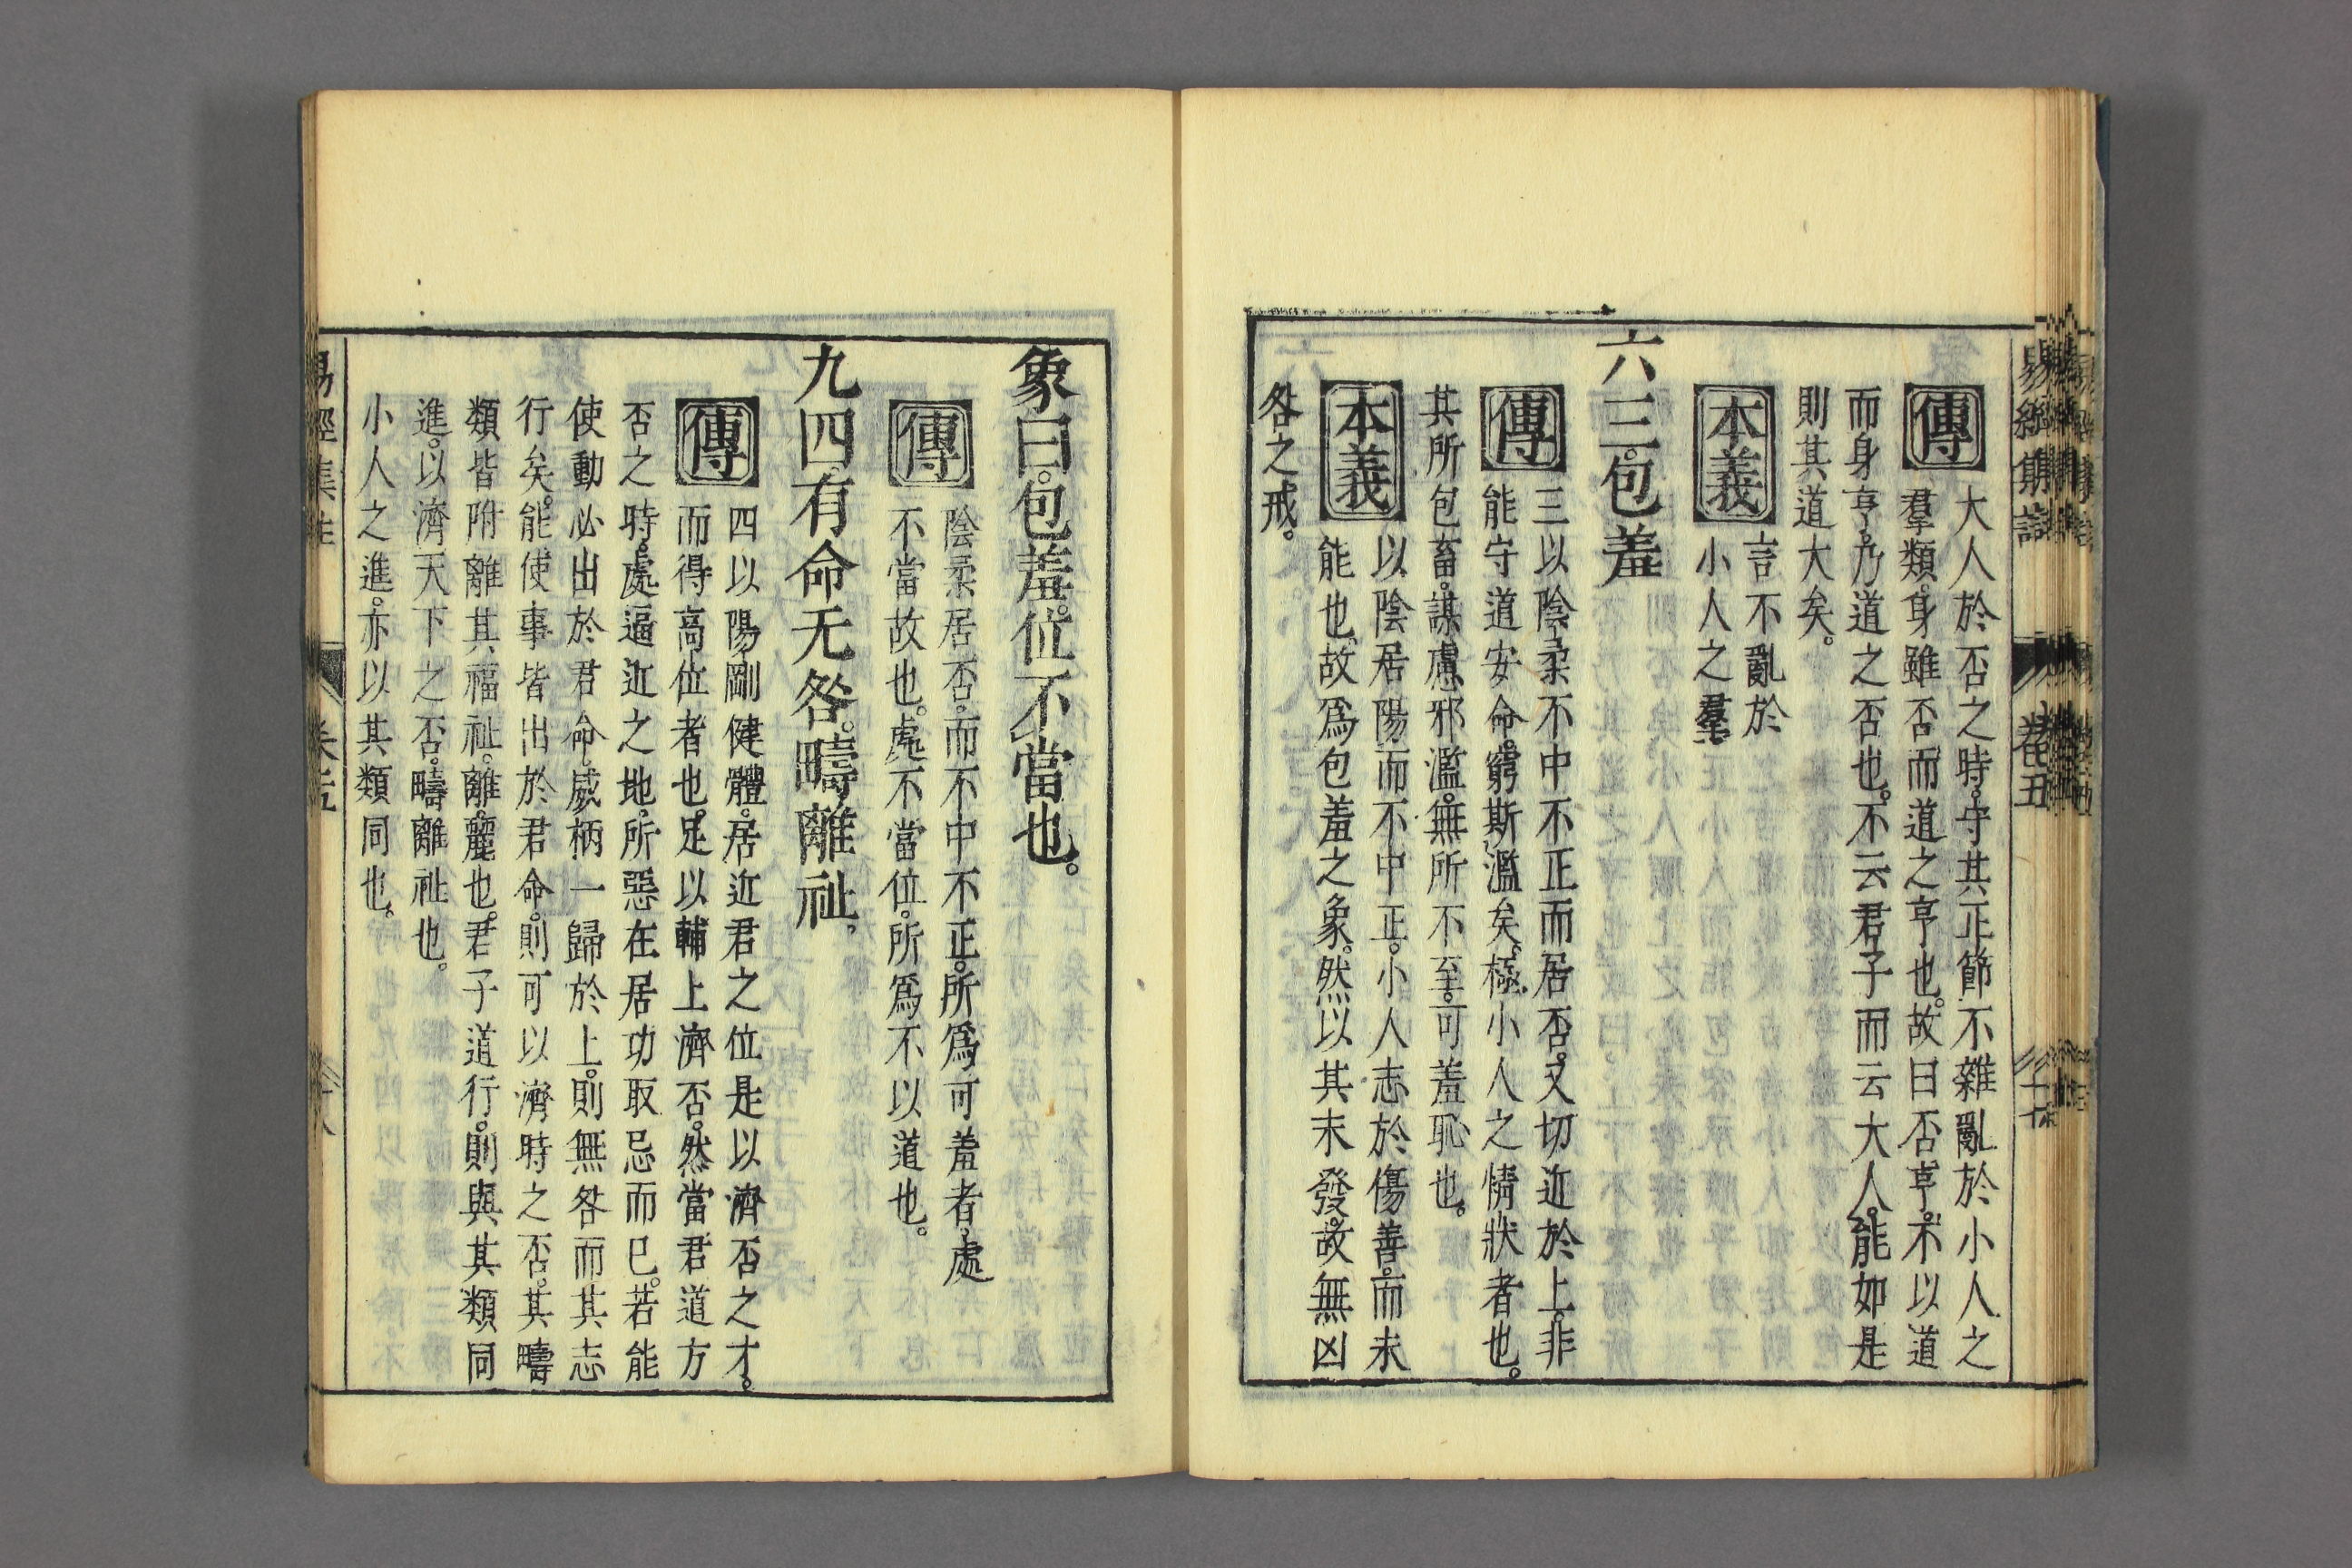 傳大人於否之時。守其正節不雜亂於小人之
羣類。身雖否而道之亨也。故曰否亨。不以道
而身亨。乃道之否也。不云君子而云大人。能如是
則其道大矣。
本義言不亂於
小人之羣
六三。包羞
傳三以陰柔不中不正而居否。又切近於上。非
能守道安命。窮斯濫矣。極小人之情狀者也。
其所包畜。謀慮邪濫。無所不至。可羞恥也。
本義以陰居陽而不中正。小人志於傷善。而未
能也。故爲包羞之象。然以其未發。故無凶
咎之戒。
象曰。包羞。位不當也。
傳陰柔居否。而不中不正。所爲可羞者。處
不當故也。處不當位。所爲不以道也。
九四。有命无咎。疇離祉。
傳四以陽剛健體。居近君之位是以濟否之才。
而得高位者也。足以輔上濟否。然當君道方
否之時。處逼近之地。所惡在居功取忌而已。若能
使動必出於君命。威柄一歸於上。則無咎而其志
行矣。能使事皆出於君命。則可以濟時之否。其疇
類皆附離其福祉。離。麗也。君子道行。則與其類同
進。以濟天下之否。疇離祉也。
小人之進。亦以其類同也。
易經集註 卷五